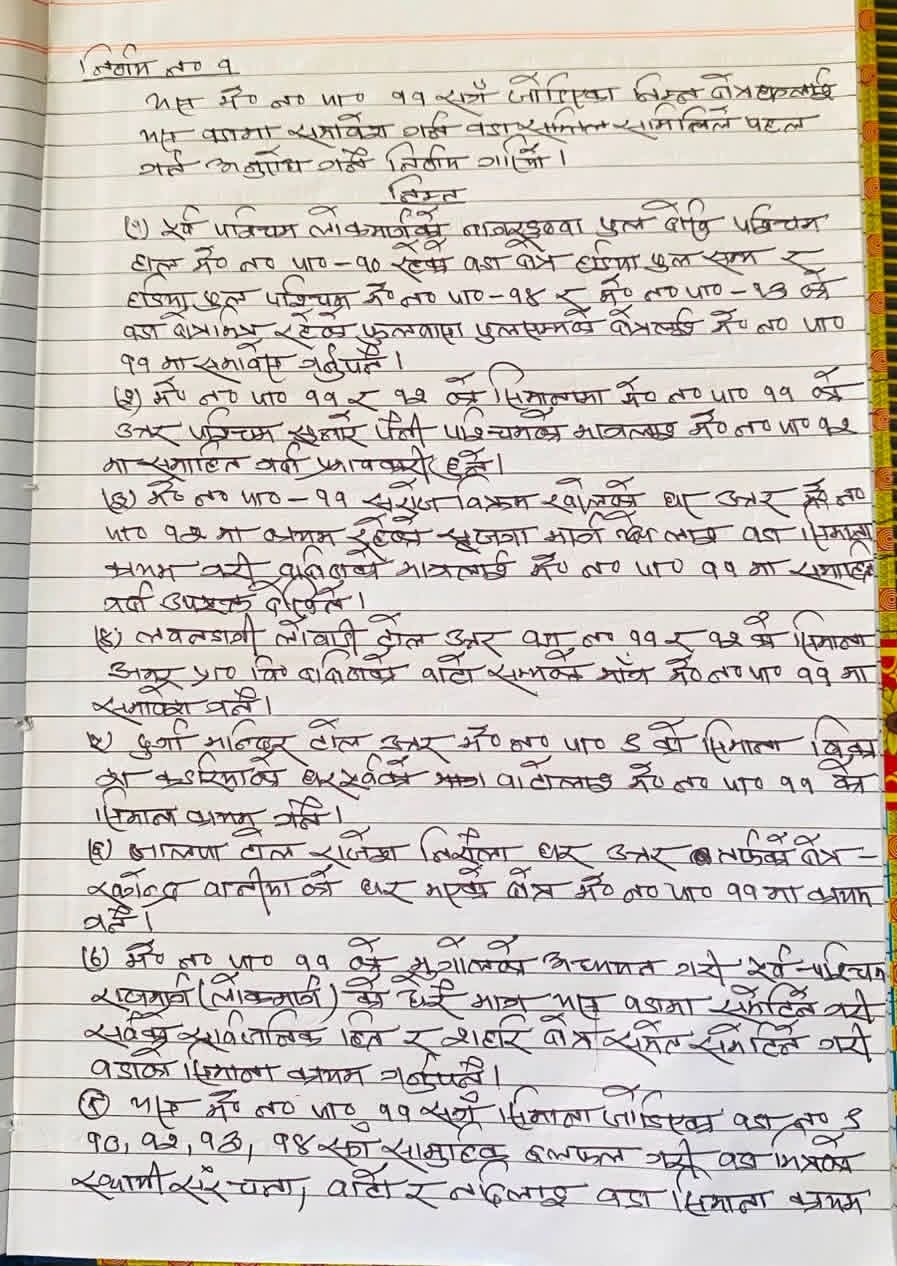 निर्णय नं० १
यस मे० न० पा० ११ सगँ जोडिएका निम्न क्षेत्रहरूलाई
यस वडामा समावेश गर्न वडा समिति समितिले पहल
गर्न अनुरोध गर्ने निर्णय गरियो।
निम्न
(१) पूर्व पश्चिम लोकमार्गको पुल देखि पश्चिम
हाल मे० न० पा०-१० रहेको वडा क्षेत्र हडिया पुल सम्म र
हडिया पुल पश्चिम मे० न० पा०-१४ र मे० न० पा०-१३ को
वडा क्षेत्रभित्र रहेको फुलवारी पुलसम्मको क्षेत्रलाई मे० न० पा०
११ मा समावेश गर्नुपर्ने।
(२) मे० न० पा० ११ र १२ को सिमानामा मे० न० पा० ११ को
उत्तर पश्चिम पश्चिमका भागलाई मे० न० पा० १२
मा समाहित गर्दा प्रभावकारी हुने।
(३) मे० न० पा०-११ सरोज विक्रम को घर उत्तर मे० न०
पा० १२ मा कायम रहेको मार्ग लाई वडा सिमाना
कायम गरी दक्षिणको भागलाई मे० न० पा० ११ मा समाहित
गर्दा उपयुक्त देखिने।
(४) टोल उत्तर वडा न० ११ र १२ को सिमाना
अमर प्रा० वि० दक्षिणको बाटो सम्मको भाग मे० न० पा० ११ मा
समावेश गर्ने।
५) दुर्गा मन्दिर टोल उत्तर मे० न० पा० ९ को सिमाना
को घर पूर्वको बाटोलाई मे० न० पा० ११ को
सिमाना कायम गर्ने।
(६) टोल राजेश निरौला घर उत्तर तर्फको क्षेत्र -
को घर भएको क्षेत्र मे० न० पा० ११ मा कायम
गर्ने।
(७) मे० न० पा० ११ को भुगोलको अध्ययन गरी पूर्व-पश्चिम
राजमार्ग (लोकमार्ग) को धेरै भाग यस वडामा समेटिने गरी
सबैको सार्वजनिक हित र शहरि क्षेत्र समेत समेटिने गरी
वडाको सिमाना कायम गर्नुपर्ने।
(८) यस मे० न० पा० ११ सगँ सिमाना जोडिएका वडा न० ९
१०, १२, १३, १४ सगँ सामुहिक छलफल गरी वडा भित्रको
स्थायी संरचना, बाटो र नदिलाई वडा सिमाना कायम